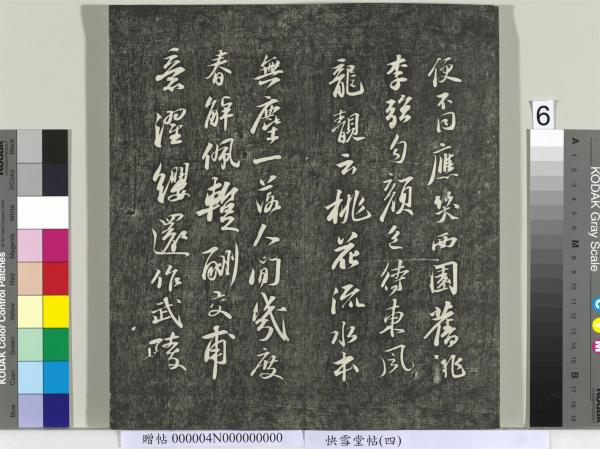 便不同應笑西園舊桃
李強勻顏色待東風
龍靚云桃花流水本
無塵一落人間幾度
春解佩暫酬交甫
意濯纓還作武陵
6
KODAK Color Control Patches
Blue
Cyan
Green
Yellow
Red
Magenta
White
3/Color
Black
KODAK Gray Scale
A
1
2
3
4
5
6
M
8
9
10
11
12
13
14
15
B
17
18
19
C
Y
M
贈帖 000004N000000000
快雪堂帖(四)